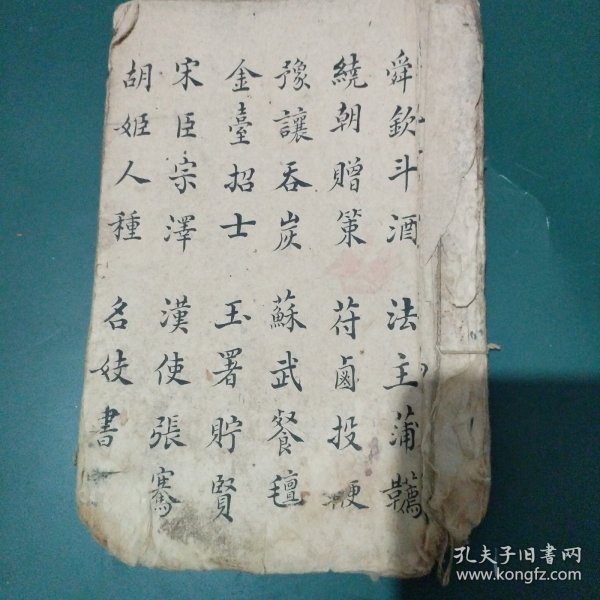 舜欽斗酒 法主蒲韉
繞朝贈策 苻鹵投梗
豫讓吞炭 蘇武餐氊
金臺招士 玉署貯賢
宋臣宗澤 漢使張騫
胡姬人種 名妓書
孔夫子旧书网
www.kongfz.com